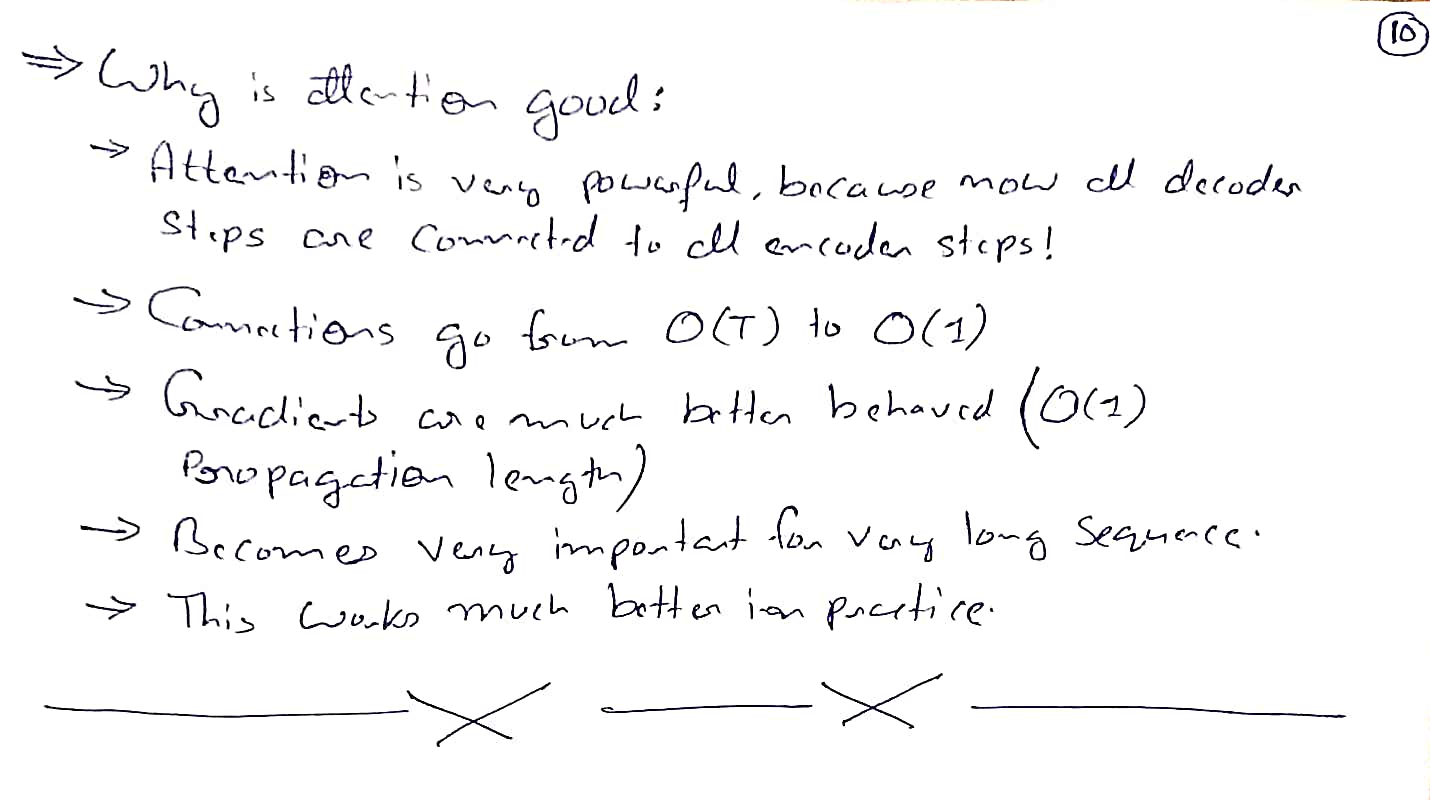 10
⇒ Why is attention good:
→ Attention is very powerful, because now all decoder
steps are connected to all encoder steps!
→ Connections go from O(T) to O(1)
→ Gradients are much better behaved (O(1)
Propagation length)
→ Becomes very important for very long sequence.
→ This works much better in practice.